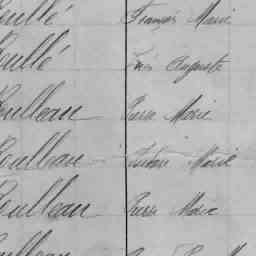 oullé François Marie
oullé Auguste
oulleau Pierre Marie
oulleau Marie
oulleau Pierre Marie
oulleau